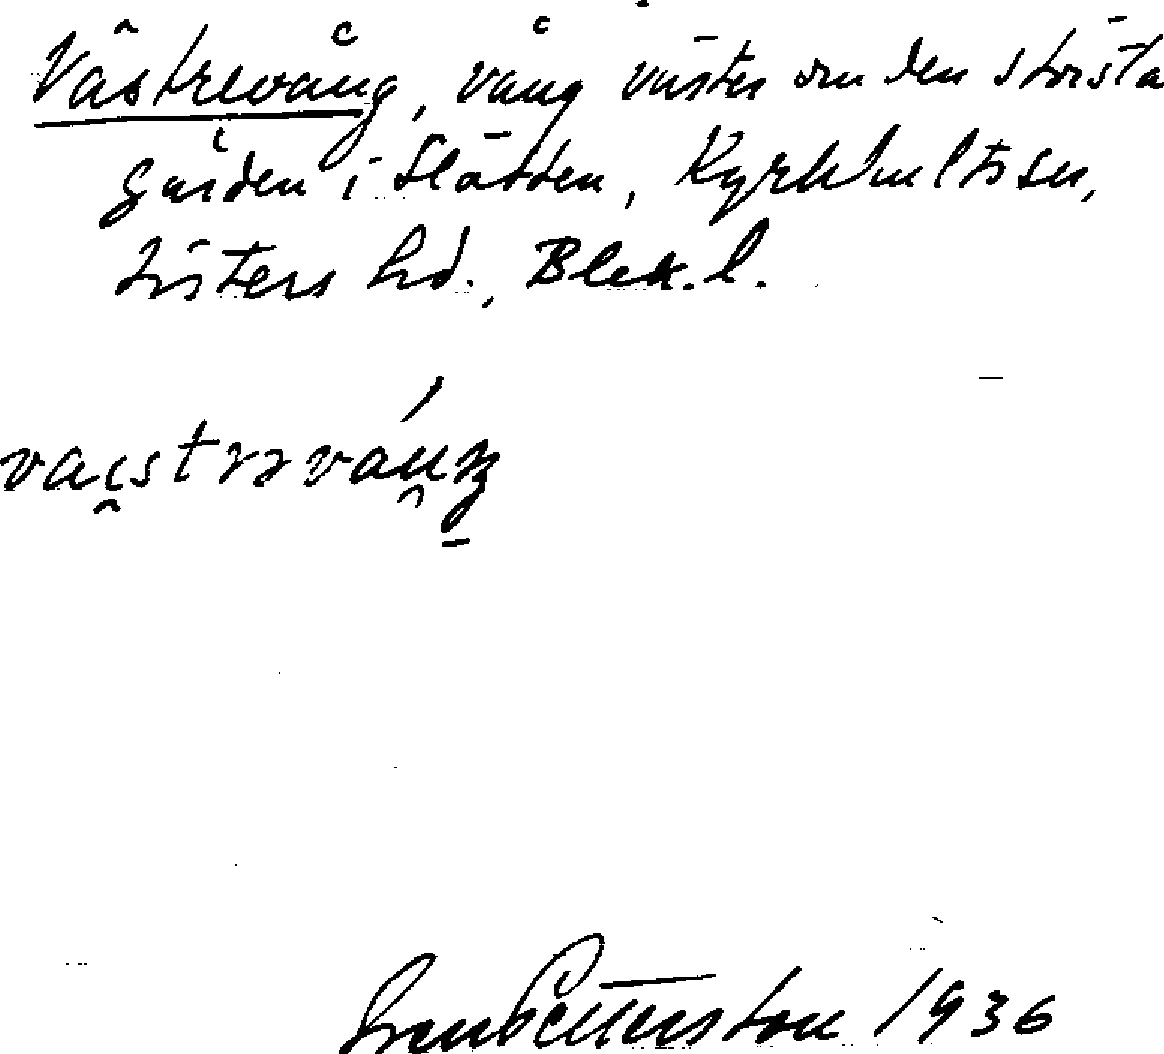 Västrevång, vång väster om den största
gården i Slätten, Kyrkhults sn,
Listers hd., Blek. l.
Sven Pettersson 1936